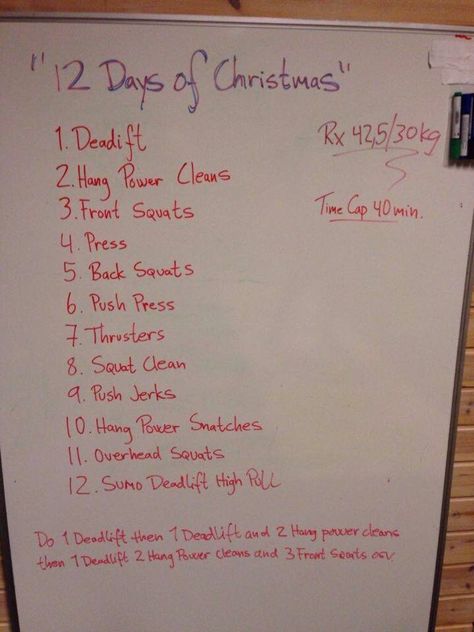 "12 Days of Christmas"
Rx 42,5/30kg
Time Cap 40 min.
1. Deadift
2. Hang Power Cleans
3. Front Squats
4. Press
5. Back Squats
6. Push Press
7. Thrusters
8. Squat Clean
9. Push Jerks
10. Hang Power Snatches
11. Overhead Squats
12. Sumo Deadlift High Pull
Do 1 Deadlift then 1 Deadlift and 2 Hang power cleans
then 1 Deadlift 2 Hang Power Cleans and 3 Front Squats osv.